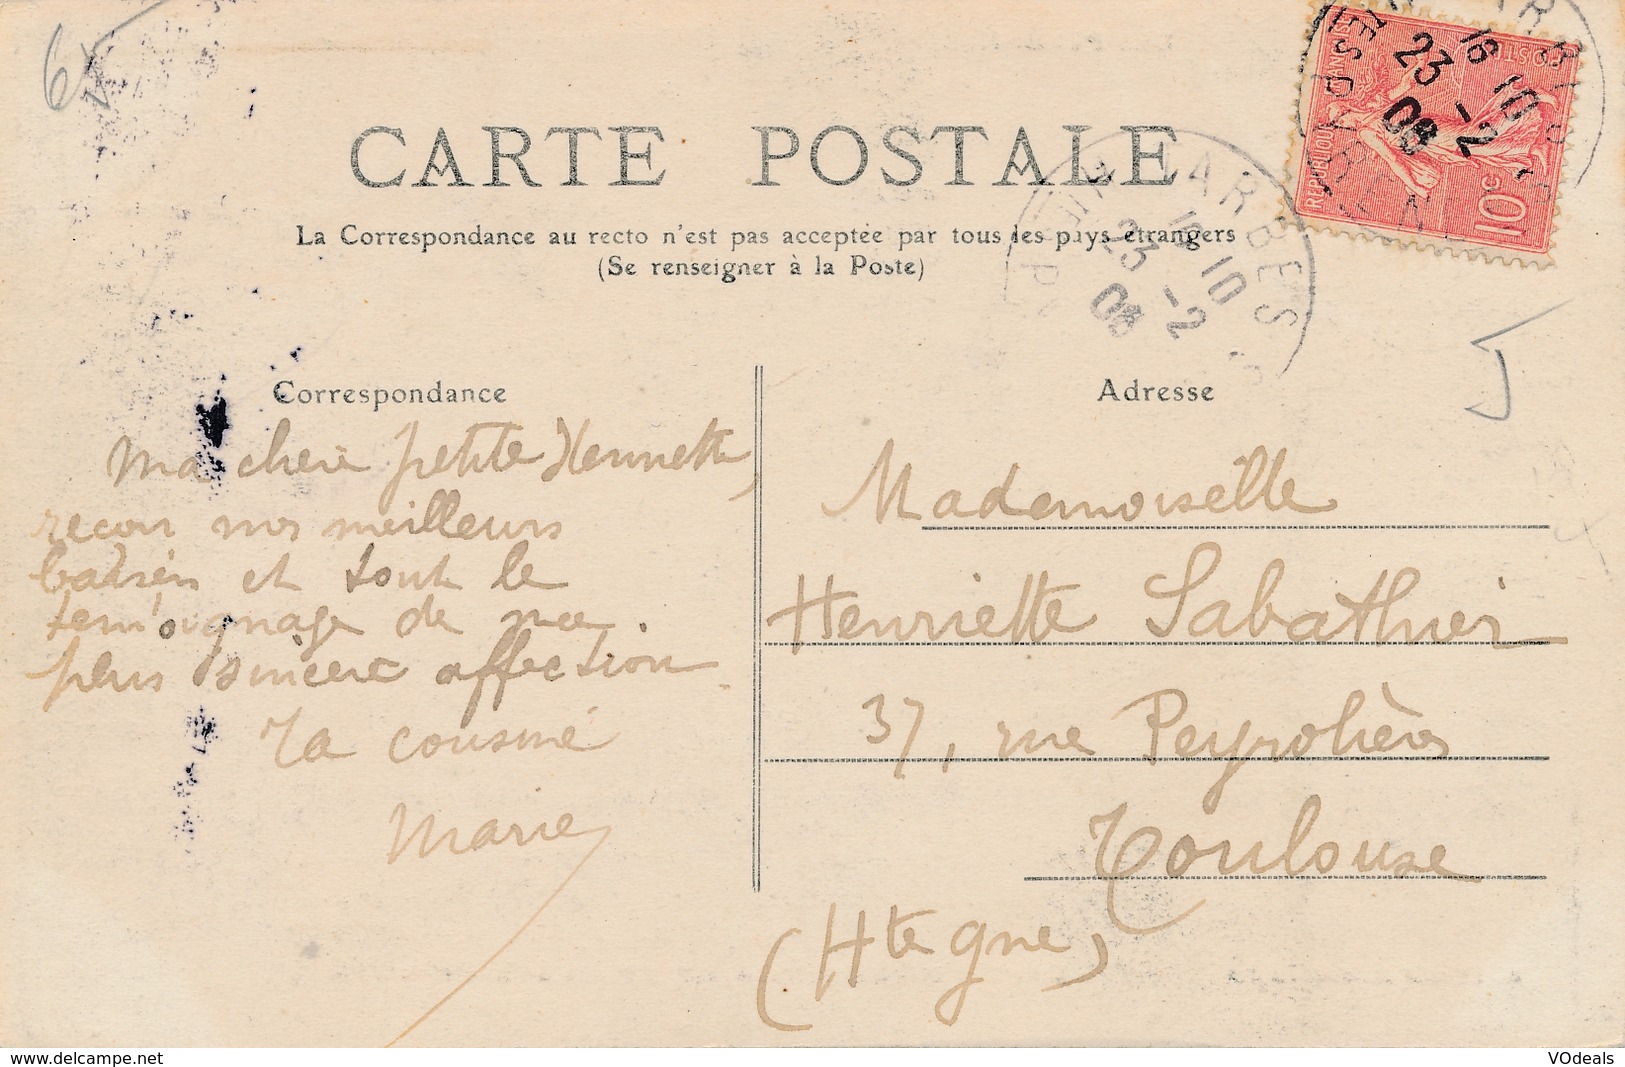 6
CARTE POSTALE
La Correspondance au recto n'est pas acceptée par tous les pays étrangers
(Se renseigner à la Poste)
REPUBLIQUE FRANÇAISE
POSTES
10c
TARBES
18 10
23 -2
08
Correspondance
Ma chère petite Henriette,
reçoi nos meilleurs
baisers et tout le
témoignage de ma
plus sincère affection
Ta cousine
Marie
Adresse
Mademoiselle
Henriette Sabathier
37, rue Peyrolières
Toulouse
(Hte Gne)
www.delcampe.net
VOdeals